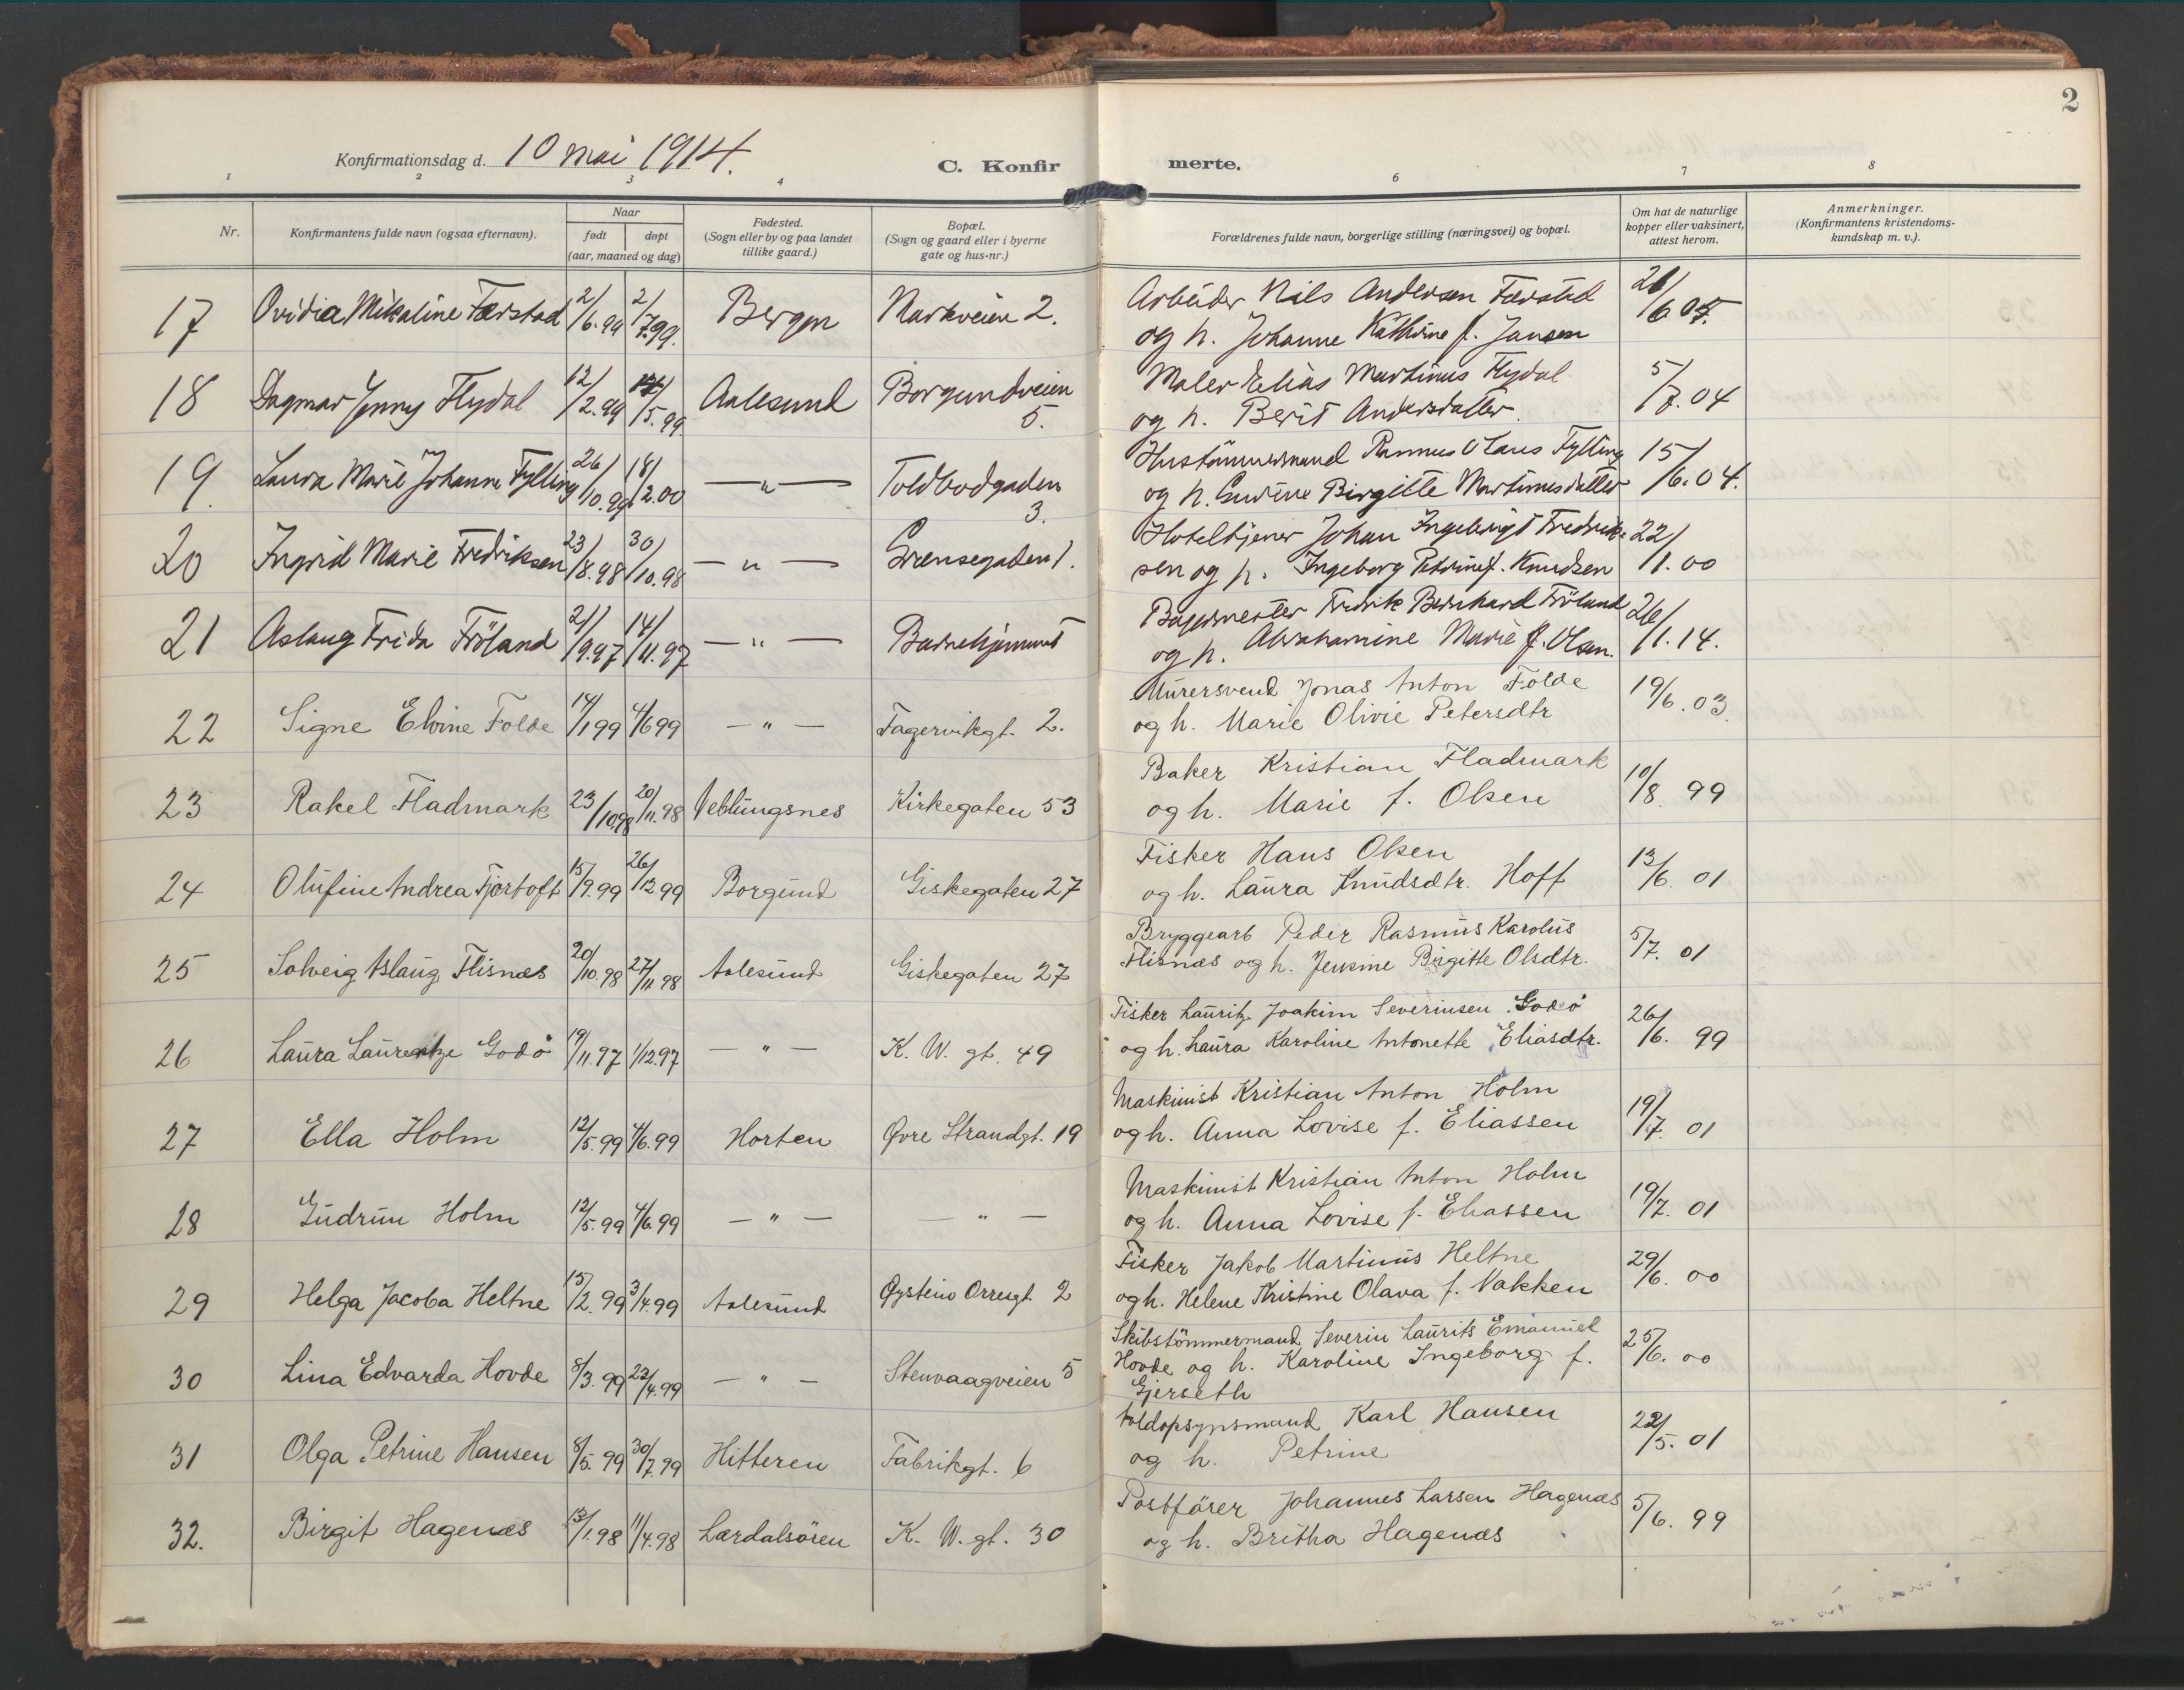 2
Konfirmationsdag d. 10 mai 1914.
C. Konfirmerte.
1 2 3 4 6 7 8
Nr.
Konfirmantens fulde navn (ogsaa efternavn).
Naar
født
døpt
(aar, maaned og dag)
Fødested.
(Sogn eller by og paa landet
tillike gaard.)
Bopæl.
(Sogn og gaard eller i byerne
gate og hus-nr.)
Forældrenes fulde navn, borgerlige stilling (næringsvei) og bopæl.
Om hat de naturlige
kopper eller vaksinert,
attest herom.
Anmerkninger.
(Konfirmantens kristendoms-
kundskap m. v.).
17 Ovidia Mikaline Færstad 2/6.99 2/7.99. Bergen Markveien 2. Arbeider Nils Andersen Færstad
og h. Johanne Kathrine f. Jansen
18 Dagmar Jenny Flydal 12/2.99 14/5.99 Aalesund Borgundveien
5. Maler Elias Martinus Flydal 5/7.04
og h. Berit Andersdatter.
19. Laura Marie Johanne Fylling 26/10.99 18/2.00 — " — Toldbodgaden
3. Hustömmermand Rasmus Olaus Fylling 15/6.04.
og h. Birgitte Martinusdatter
20 Ingrid Marie Fredriksen 23/8.98 30/10.98 — " — Grensegaden 1. Hoteltjener Johan Ingebrigt Fredrik- 22/11.00
sen og h. Ingeborg Petrine f. Knudsen
21 Aslaug Frida Fröland 21/9.97 14/11.97 — " — Barnehjemmet Bagermester Fredrik Bernhard Fröland 26/1.14.
og h. Abrahamine Marie f. Olsen.
22 Signe Elvine Folde 14/1 99 4/6 99 — " — Fagervikgt. 2. Murersvend Jonas Anton Folde 19/6.03.
og h. Marie Olivie Petersdtr
23 Rakel Fladmark 23/10.98 20/11.98 Veblungsnes Kirkegaten 53 Baker Kristian Fladmark 10/8 99
og h. Marie f. Olsen
24 Olufine Andrea Fjørtoft 15/9.99 26/12.99 Borgund Giskegaten 27 Fisker Hans Olsen 13/6. 01
og h. Laura Knudsdtr. Hoff
25 Solveig Aslaug Flisnæs 20/10.98 27/11.98 Aalesund Giskegaten 27 Bryggearb Peder Rasmus Karolus 5/7. 01
Flisnæs og h. Jensine Birgitte Olsdtr.
26 Laura Laurentze Godö 19/11.97 1/12.97 — " — K. W. gt. 49 Fisker Lauritz Joakim Severinsen Godö 26/6. 99
og h. Laura Karoline Antonette Eliasdtr.
27 Ella Holm 12/5.99 4/6.99 Horten Øvre Strandgt. 19 Maskinist Kristian Anton Holm 19/7. 01
og h. Anna Lovise f. Eliassen
28 Gudrun Holm 12/5.99 4/6.99 — " — — " — Maskinist Kristian Anton Holm 19/7. 01
og h. Anna Lovise f. Eliassen
29 Helga Jacoba Heltne 15/2.99 3/4.99 Aalesund Øystein Orresgt. 2 Fisker Jakob Martinus Heltne 29/6. 00
og h. Helene Kristine Olava f. Nakken
30 Lina Edvarda Hovde 8/3.99 23/4.99 — " — Stenvaagveien 5 Skibstömmermand Severin Laurits Emanuel 25/6. 00
Hovde og h. Karoline Ingeborg f.
Gjerseth
31 Olga Petrine Hansen 8/5.99 30/7.99 Hitteren Fabrikgt. 6 Toldopsynsmand Karl Hansen 22/5. 01
og h. Petrine
32. Birgit Hagenæs 13/1.98 11/4.98 Lærdalsören K. W. gt. 30 Postförer Johannes Larsen Hagenæs 5/6. 99
og h. Britha Hagenæs